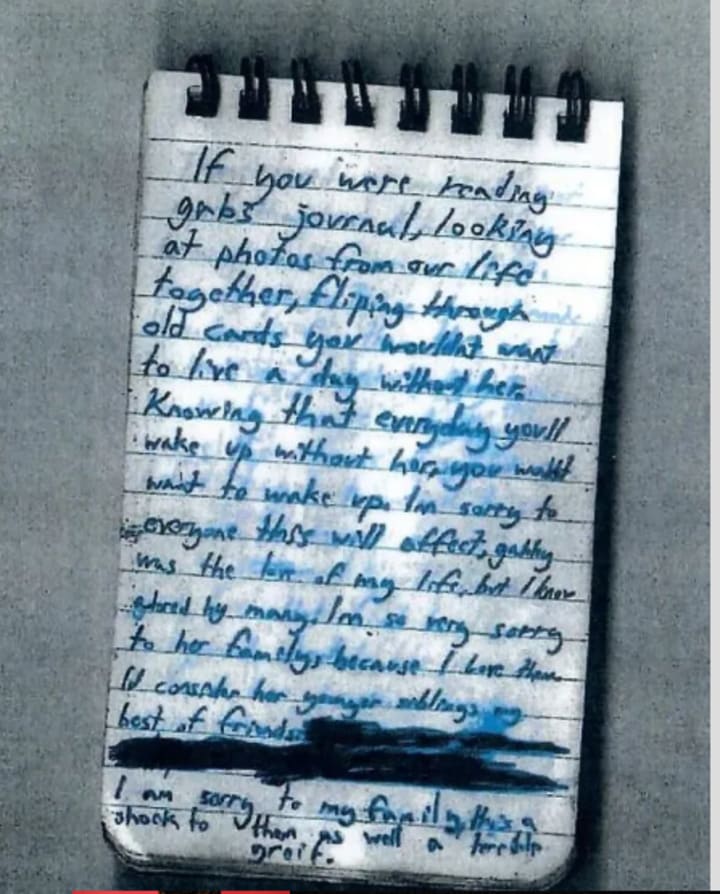 If you were reading
gabs journal, looking
at photos from our life
together, fliping through
old cards you wouldnt want
to live a day without her.
Knowing that everyday you'll
wake up without her, you wouldnt
want to wake up. Im sorry to
everyone this will affect, gabby
was the love of my life, but I know
adored by many. Im so very sorry
to her family, because I love them.
I'd consider her younger siblings my
best of friends.
I am sorry to my family, this is a
shock to them as well a terrible
greif.